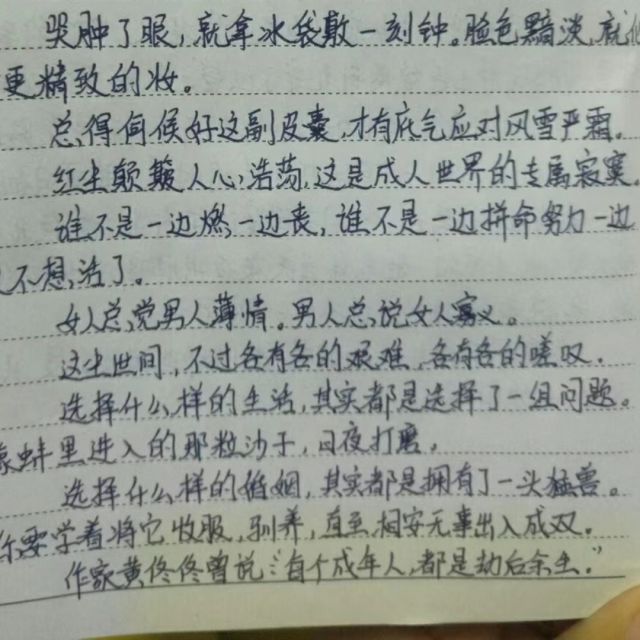 哭肿了眼，就拿冰袋敷一刻钟。脸色黯淡，就
更精致的妆。
总得伺候好这副皮囊，才有底气应对风雪严霜。
红尘颠簸人心浩荡，这是成人世界的专属寂寞。
谁不是一边燃一边丧，谁不是一边拼命努力一边
不想活了。
女人总觉男人薄情。男人总说女人寡义。
这尘世间，不过各有各的艰难，各有各的嗟叹．
选择什么样的生活，其实都是选择了一组问题。
蚌里进入的那粒沙子，日夜打磨，
选择什么样的婚姻，其实都是拥有了一头猛兽。
你要学着将它收服，驯养，直至相安无事出入成双．
作家黄佟佟曾说：“每个成年人，都是劫后余生．”